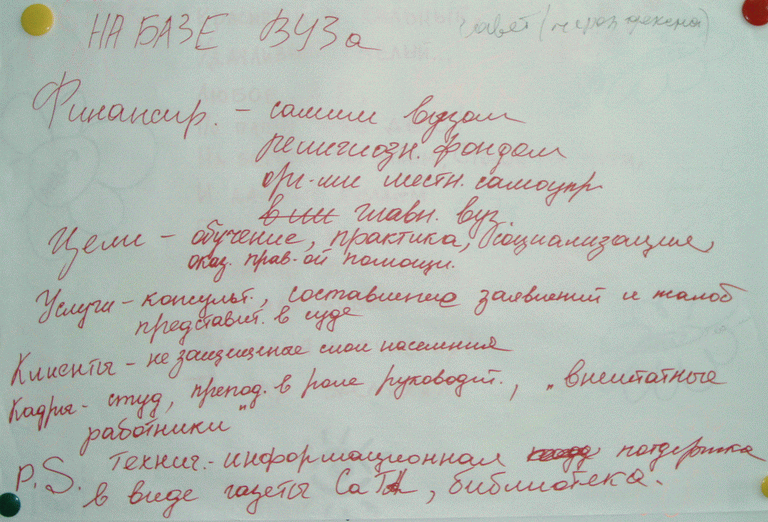 НА БАЗЕ ВУЗа
Финансир. – самим вузом
религиозн. фондом
орг-ми местн. самоупр
главн. вуз.
Цели – обучение, практика, социализация,
оказ. прав-ой помощи.
Услуги – консульт., составление заявлений и жалоб
представит. в суде
Клиенты – не защищеные слои населения
Кадры – студ, препод. в роле руководит., „внештатные
работники"
P.S. Технич.-информационная поддержка
в виде газеты, библиотека.